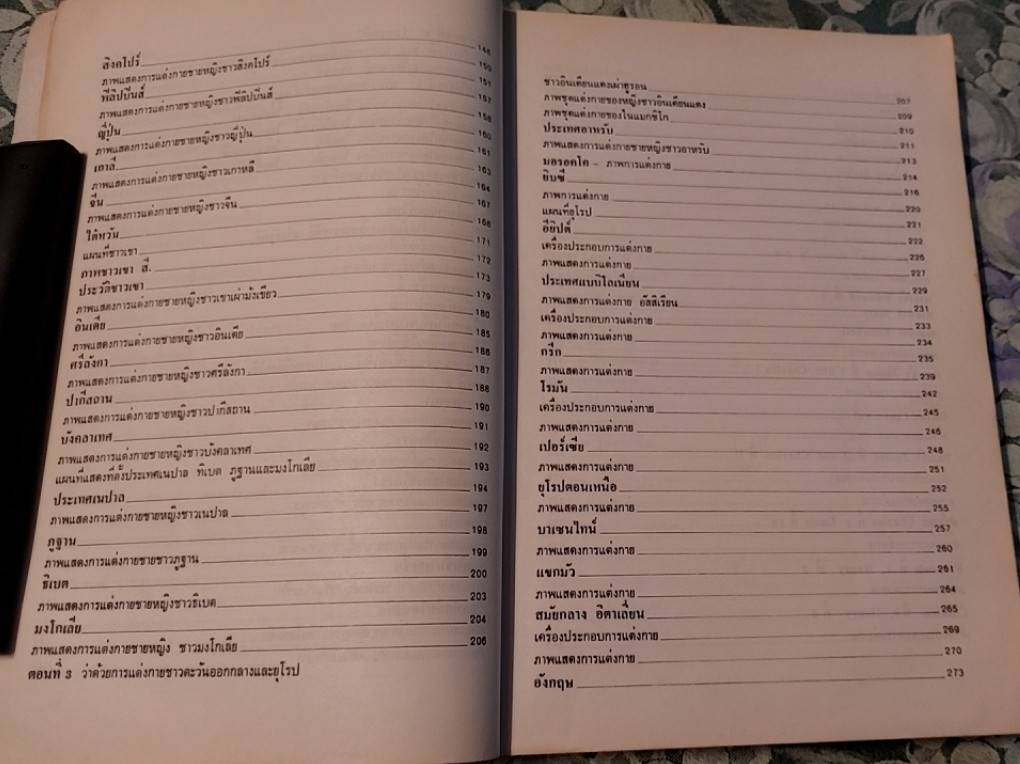 สิงคโปร์ 148
ภาพแสดงการแต่งกายชายหญิงชาวสิงคโปร์ 150
ฟิลิปปีนส์ 151
ภาพแสดงการแต่งกายชายหญิงชาวฟิลิปปีนส์ 157
ญี่ปุ่น 158
ภาพแสดงการแต่งกายชายหญิงชาวญี่ปุ่น 160
เกาลี 161
ภาพแสดงการแต่งกายชายหญิงชาวเกาหลี 163
จีน 164
ภาพแสดงการแต่งกายชายหญิงชาวจีน 167
ไต้หวัน 168
แผนที่ชาวเขา 171
ภาพชาวเขา สี 172
ประวัติชาวเขา 173
ภาพแสดงการแต่งกายชายหญิงชาวเขาเผ่าม้งเขียว 179
อินเดีย 180
ภาพแสดงการแต่งกายชายหญิงชาวอินเดีย 185
ศรีลังกา 186
ภาพแสดงการแต่งกายชายหญิงชาวศรีลังกา 187
ปากีสถาน 188
ภาพแสดงการแต่งกายชายหญิงชาวปากีสถาน 190
บังคลาเทศ 191
ภาพแสดงการแต่งกายชายหญิงชาวบังคลาเทศ 192
แผนที่แสดงที่ตั้งประเทศเนปาล ทิเบต ภูฐานและมงโกเลีย 193
ประเทศเนปาล 194
ภาพแสดงการแต่งกายชายหญิงชาวเนปาล 197
ภูฐาน 198
ภาพแสดงการแต่งกายชายชาวภูฐาน 199
ธิเบต 200
ภาพแสดงการแต่งกายชายหญิงชาวธิเบต 203
มงโกเลีย 204
ภาพแสดงการแต่งกายชายหญิง ชาวมงโกเลีย 206
ตอนที่ 3 ว่าด้วยการแต่งกายชาวตะวันออกกลางและยุโรป
ชาวอินเดียนแดงเผ่าฮูรอน 207
ภาพชุดแต่งกายของหญิงชาวอินเดียนแดง 209
ภาพชุดแต่งกายของในแมกซิโก 210
ประเทศอาหรับ 211
ภาพแสดงการแต่งกายชายหญิงชาวอาหรับ 213
มอรอคโค - ภาพการแต่งกาย 214
ยิบซี 216
ภาพการแต่งกาย 220
แผนที่ยุโรป 221
อียิปต์ 222
เครื่องประกอบการแต่งกาย 226
ภาพแสดงการแต่งกาย 227
ประเทศแบบิโลเนียน 229
ภาพแสดงการแต่งกาย อัสสิเรียน 231
เครื่องประกอบการแต่งกาย 233
ภาพแสดงการแต่งกาย 234
กรีก 235
ภาพแสดงการแต่งกาย 239
โรมัน 242
เครื่องประกอบการแต่งกาย 245
ภาพแสดงการแต่งกาย 246
เปอร์เซีย 248
ภาพแสดงการแต่งกาย 251
ยุโรปตอนเหนือ 252
ภาพแสดงการแต่งกาย 255
บาเซนไทน์ 257
ภาพแสดงการแต่งกาย 260
แขกมัว 261
ภาพแสดงการแต่งกาย 264
สมัยกลาง อิตาเลี่ยน 265
เครื่องประกอบการแต่งกาย 269
ภาพแสดงการแต่งกาย 270
อังกฤษ 273